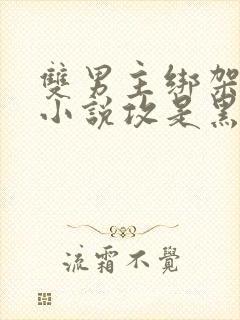 雙男主綁架
小說攻是黑
流霜不覺